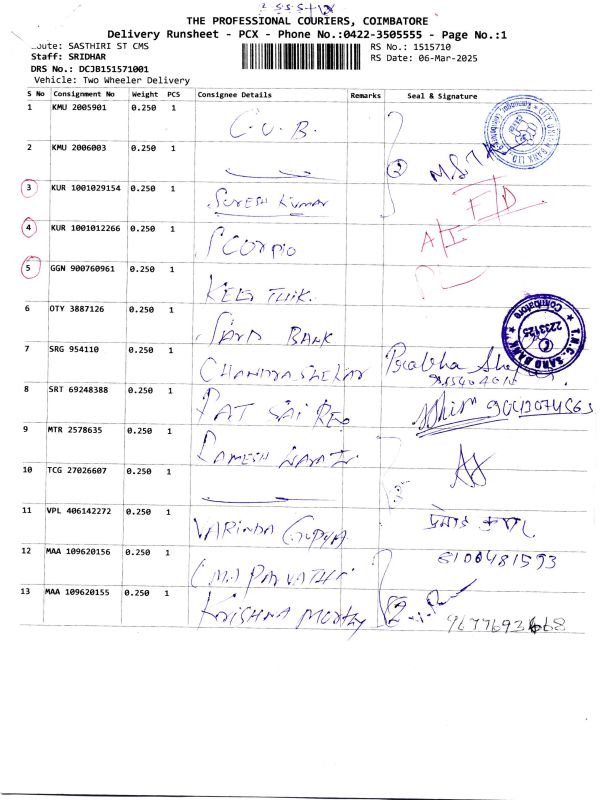 THE PROFESSIONAL COURIERS, COIMBATORE
Delivery Runsheet - PCX - Phone No.:0422-3505555 - Page No.:1
Route: SASTHIRI ST CMS
RS No.: 1515710
Staff: SRIDHAR
RS Date: 06-Mar-2025
DRS No.: DCJB151571001
Vehicle: Two Wheeler Delivery
S No Consignment No Weight PCS Consignee Details Remarks Seal & Signature
1 KMU 2005901 0.250 1 C.U.B.
2 KMU 2006003 0.250 1
3 KUR 1001029154 0.250 1 Suresh Kumar
4 KUR 1001012266 0.250 1 Scorpio
5 GGN 900760961 0.250 1
6 OTY 3887126 0.250 1 BANK
7 SRG 954110 0.250 1 CHANDRASHEKAR Prabha
8 SRT 69248388 0.250 1 PAT SAI 9042074563
9 MTR 2578635 0.250 1 RAMESH
10 TCG 27026607 0.250 1
11 VPL 406142272 0.250 1 VARINDA GUPTA
12 MAA 109620156 0.250 1 8100481593
13 MAA 109620155 0.250 1 KRISHNA MORTHY
CITY UNION BANK LTD
T.N.C. SARD BANK
Coimbatore
2233125